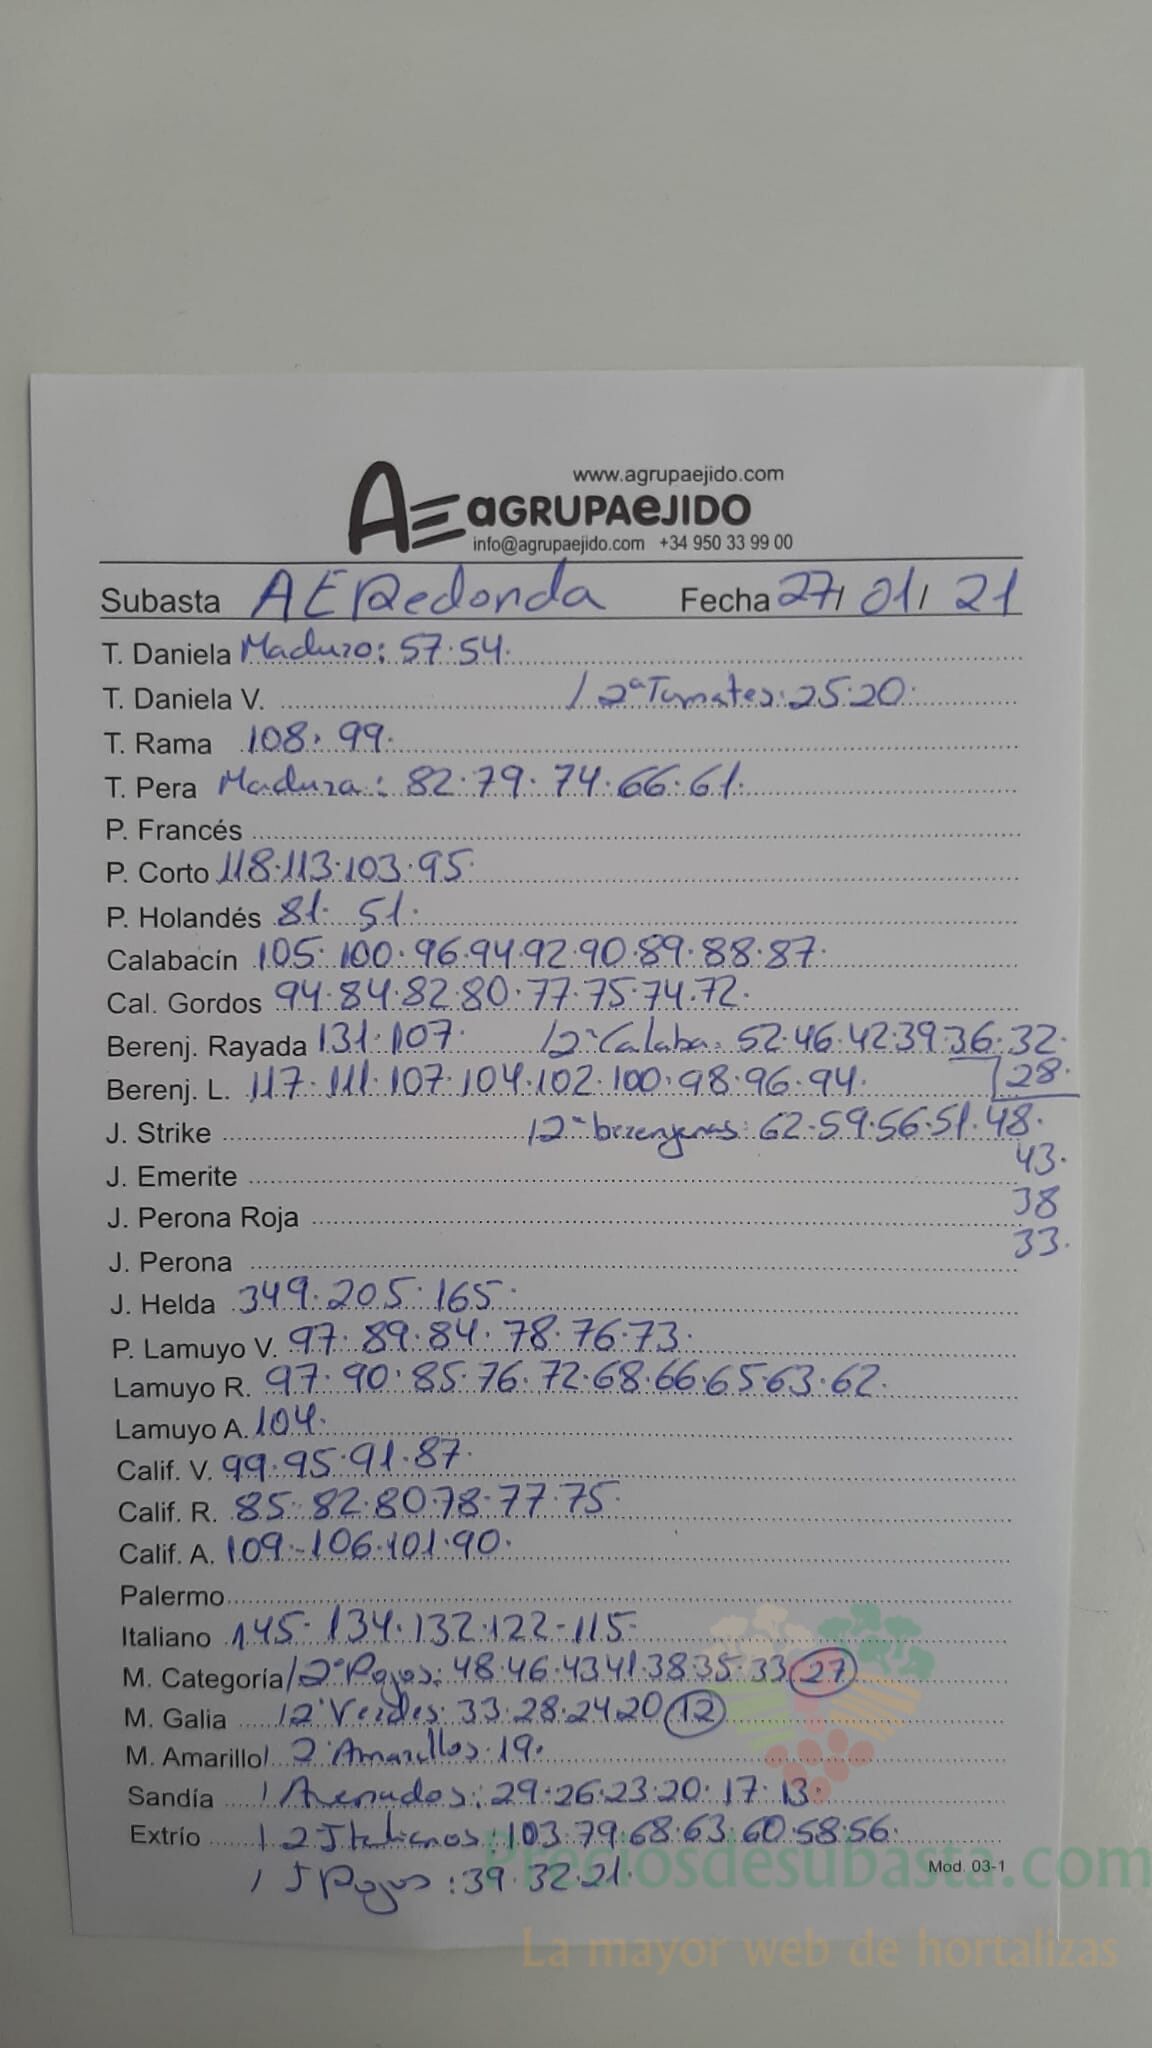 www.agrupaejido.com
AE aGRUPAeJIDO
info@agrupaejido.com +34 950 33 99 00
Subasta AERedonda Fecha 27/ 01/ 21
T. Daniela Maduro: 57.54.
T. Daniela V. / 2ª Tomates: 25.20.
T. Rama 108. 99.
T. Pera Madura: 82.79.74.66.61.
P. Francés
P. Corto 118.113.103.95.
P. Holandés 81. 51.
Calabacín 105. 100. 96.94.92.90.89.88.87.
Cal. Gordos 94.84.82.80.77.75.74.72.
Berenj. Rayada 131.107. /2ª Calaba: 52.46.42.39.36.32.
Berenj. L. 117.111.107.104.102.100.98.96.94. 28.
J. Strike /2ª berenjenas: 62.59.56.51.48.
43.
J. Emerite
38
J. Perona Roja
33.
J. Perona
J. Helda 349.205.165.
P. Lamuyo V. 97.89.84.78.76.73.
Lamuyo R. 97.90.85.76.72.68.66.65.63.62.
Lamuyo A. 104.
Calif. V. 99.95.91.87.
Calif. R. 85.82.80.78.77.75.
Calif. A. 109-106.101.90.
Palermo
Italiano 145.134.132.122-115.
M. Categoría /2ª Rojos: 48.46.43.41.38.35.33 27
M. Galia /2ª Verdes: 33.28.24.20 12
M. Amarillo / 2ª Amarillos.19.
Sandía / Arenados: 29.26.23.20.17.13.
Extrío / 2 Italianos: 103.79.68.63.60.58.56.
/ J Rojos: 39.32.21.
Mod. 03-1
Preciosdesubasta.com
La mayor web de hortalizas